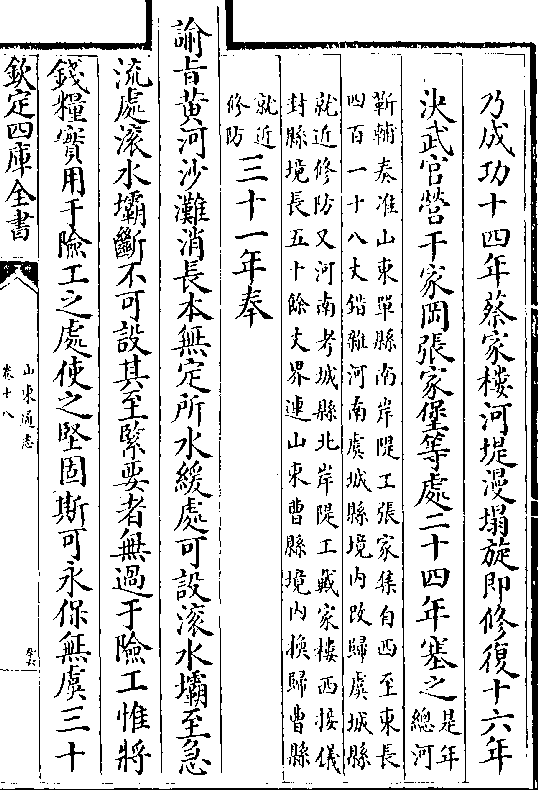 乃成功十四年蔡家樓河堤漫塌旋即修復十六年
決武官營干家岡張家堡等處二十四年塞之是年
總河
靳輔奏准山東單縣南岸隄工張家集自西至東長
四百一十八丈錯雜河南虞城縣境內改歸虞城縣
就近修防又河南考城縣北岸隄工戴家樓西接儀
封縣境長五十餘丈界連山東曹縣境內換歸曹縣
就近
修防三十一年奉
諭旨黃河沙灘消長本無定所水緩處可設滚水壩至急
流處滚水壩斷不可設其至緊要者無過于險工惟將
錢糧實用于險工之處使之堅固斯可永保無虞三十
欽定四庫全書
山東通志
卷十八